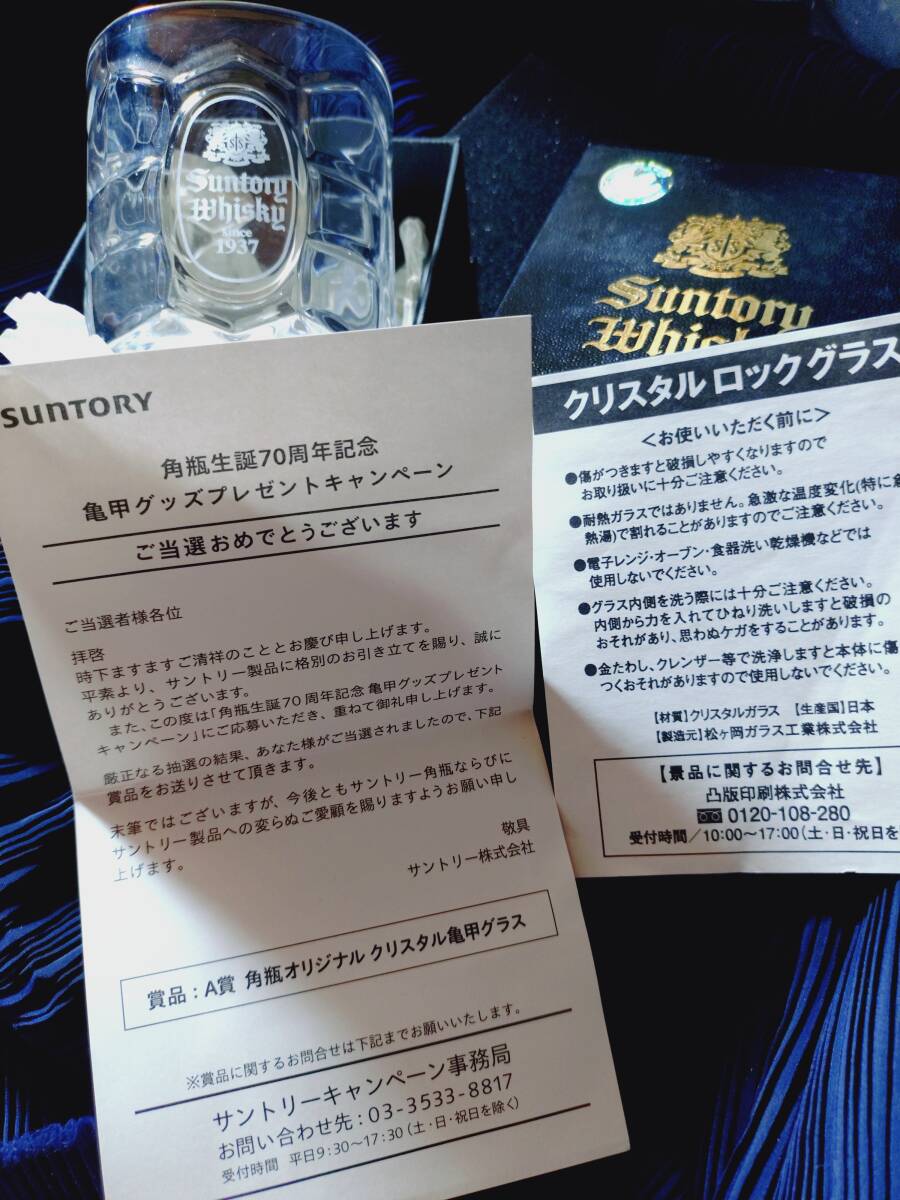 Suntory
Whisky
since
1937
Suntory
SUNTORY
角瓶生誕70周年記念
亀甲グッズプレゼントキャンペーン
ご当選おめでとうございます
ご当選者様各位
拝啓
時下ますますご清祥のこととお慶び申し上げます。
平素より、サントリー製品に格別のお引き立てを賜り、誠に
ありがとうございます。
また、この度は「角瓶生誕70周年記念 亀甲グッズプレゼント
キャンペーン」にご応募いただき、重ねて御礼申し上げます。
厳正なる抽選の結果、あなた様がご当選されましたので、下記
賞品をお送りさせて頂きます。
末筆ではございますが、今後ともサントリー角瓶ならびに
サントリー製品への変らぬご愛顧を賜りますようお願い申し
上げます。
敬具
サントリー株式会社
賞品：A賞 角瓶オリジナル クリスタル亀甲グラス
※賞品に関するお問合せは下記までお願いいたします。
サントリーキャンペーン事務局
お問い合わせ先：03-3533-8817
受付時間 平日9:30～17:30（土・日・祝日を除く）
クリスタル ロックグラス
＜お使いいただく前に＞
●傷がつきますと破損しやすくなりますので
お取り扱いに十分ご注意ください。
●耐熱ガラスではありません。急激な温度変化(特に急
熱湯)で割れることがありますのでご注意ください。
●電子レンジ・オーブン・食器洗い乾燥機などでは
使用しないでください。
●グラス内側を洗う際には十分ご注意ください。
内側から力を入れてひねり洗いしますと破損の
おそれがあり、思わぬケガをすることがあります。
●金たわし、クレンザー等で洗浄しますと本体に傷
つくおそれがありますので使用しないでください。
【材質】クリスタルガラス 【生産国】日本
【製造元】松ヶ岡ガラス工業株式会社
【景品に関するお問合せ先】
凸版印刷株式会社
0120-108-280
受付時間／10:00～17:00（土・日・祝日を